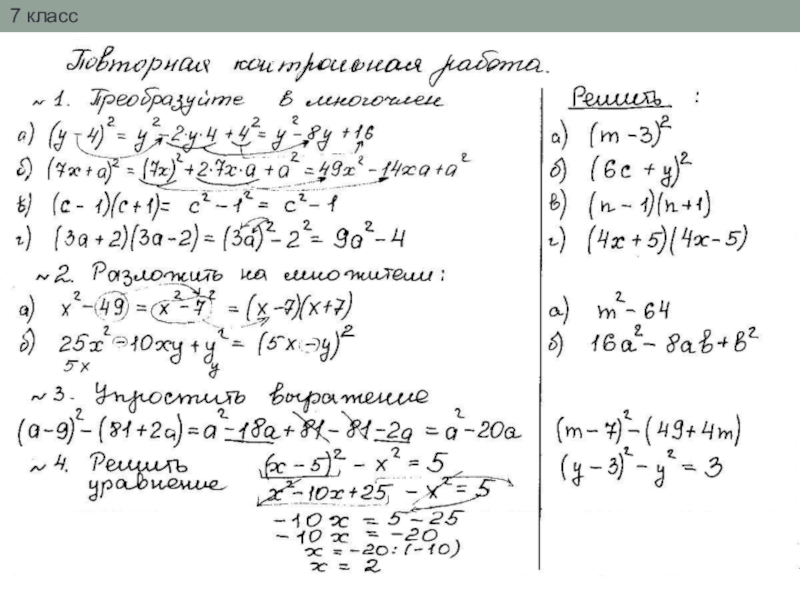 7 класс
Повторная контрольная работа.
№ 1. Преобразуйте в многочлен
а) (y – 4)² = y² – 2·y·4 + 4² = y² – 8y + 16
б) (7x + a)² = (7x)² + 2·7x·a + a² = 49x² – 14xa + a²
в) (c – 1)(c + 1) = c² – 1² = c² – 1
г) (3a + 2)(3a – 2) = (3a)² – 2² = 9a² – 4
№ 2. Разложить на множители:
а) x² – 49 = x² – 7² = (x – 7)(x + 7)
б) 25x² – 10xy + y² = (5x – y)²
5x y
№ 3. Упростить выражение
(a – 9)² – (81 + 2a) = a² – 18a + 81 – 81 – 2a = a² – 20a
№ 4. Решить (x – 5)² – x² = 5
уравнение x² – 10x + 25 – x² = 5
– 10x = 5 – 25
– 10x = – 20
x = – 20 : (– 10)
x = 2
Решить :
а) (m – 3)²
б) (6c + y)²
в) (n – 1)(n + 1)
г) (4x + 5)(4x – 5)
а) m² – 64
б) 16a² – 8ab + b²
(m – 7)² – (49 + 4m)
(y – 3)² – y² = 3